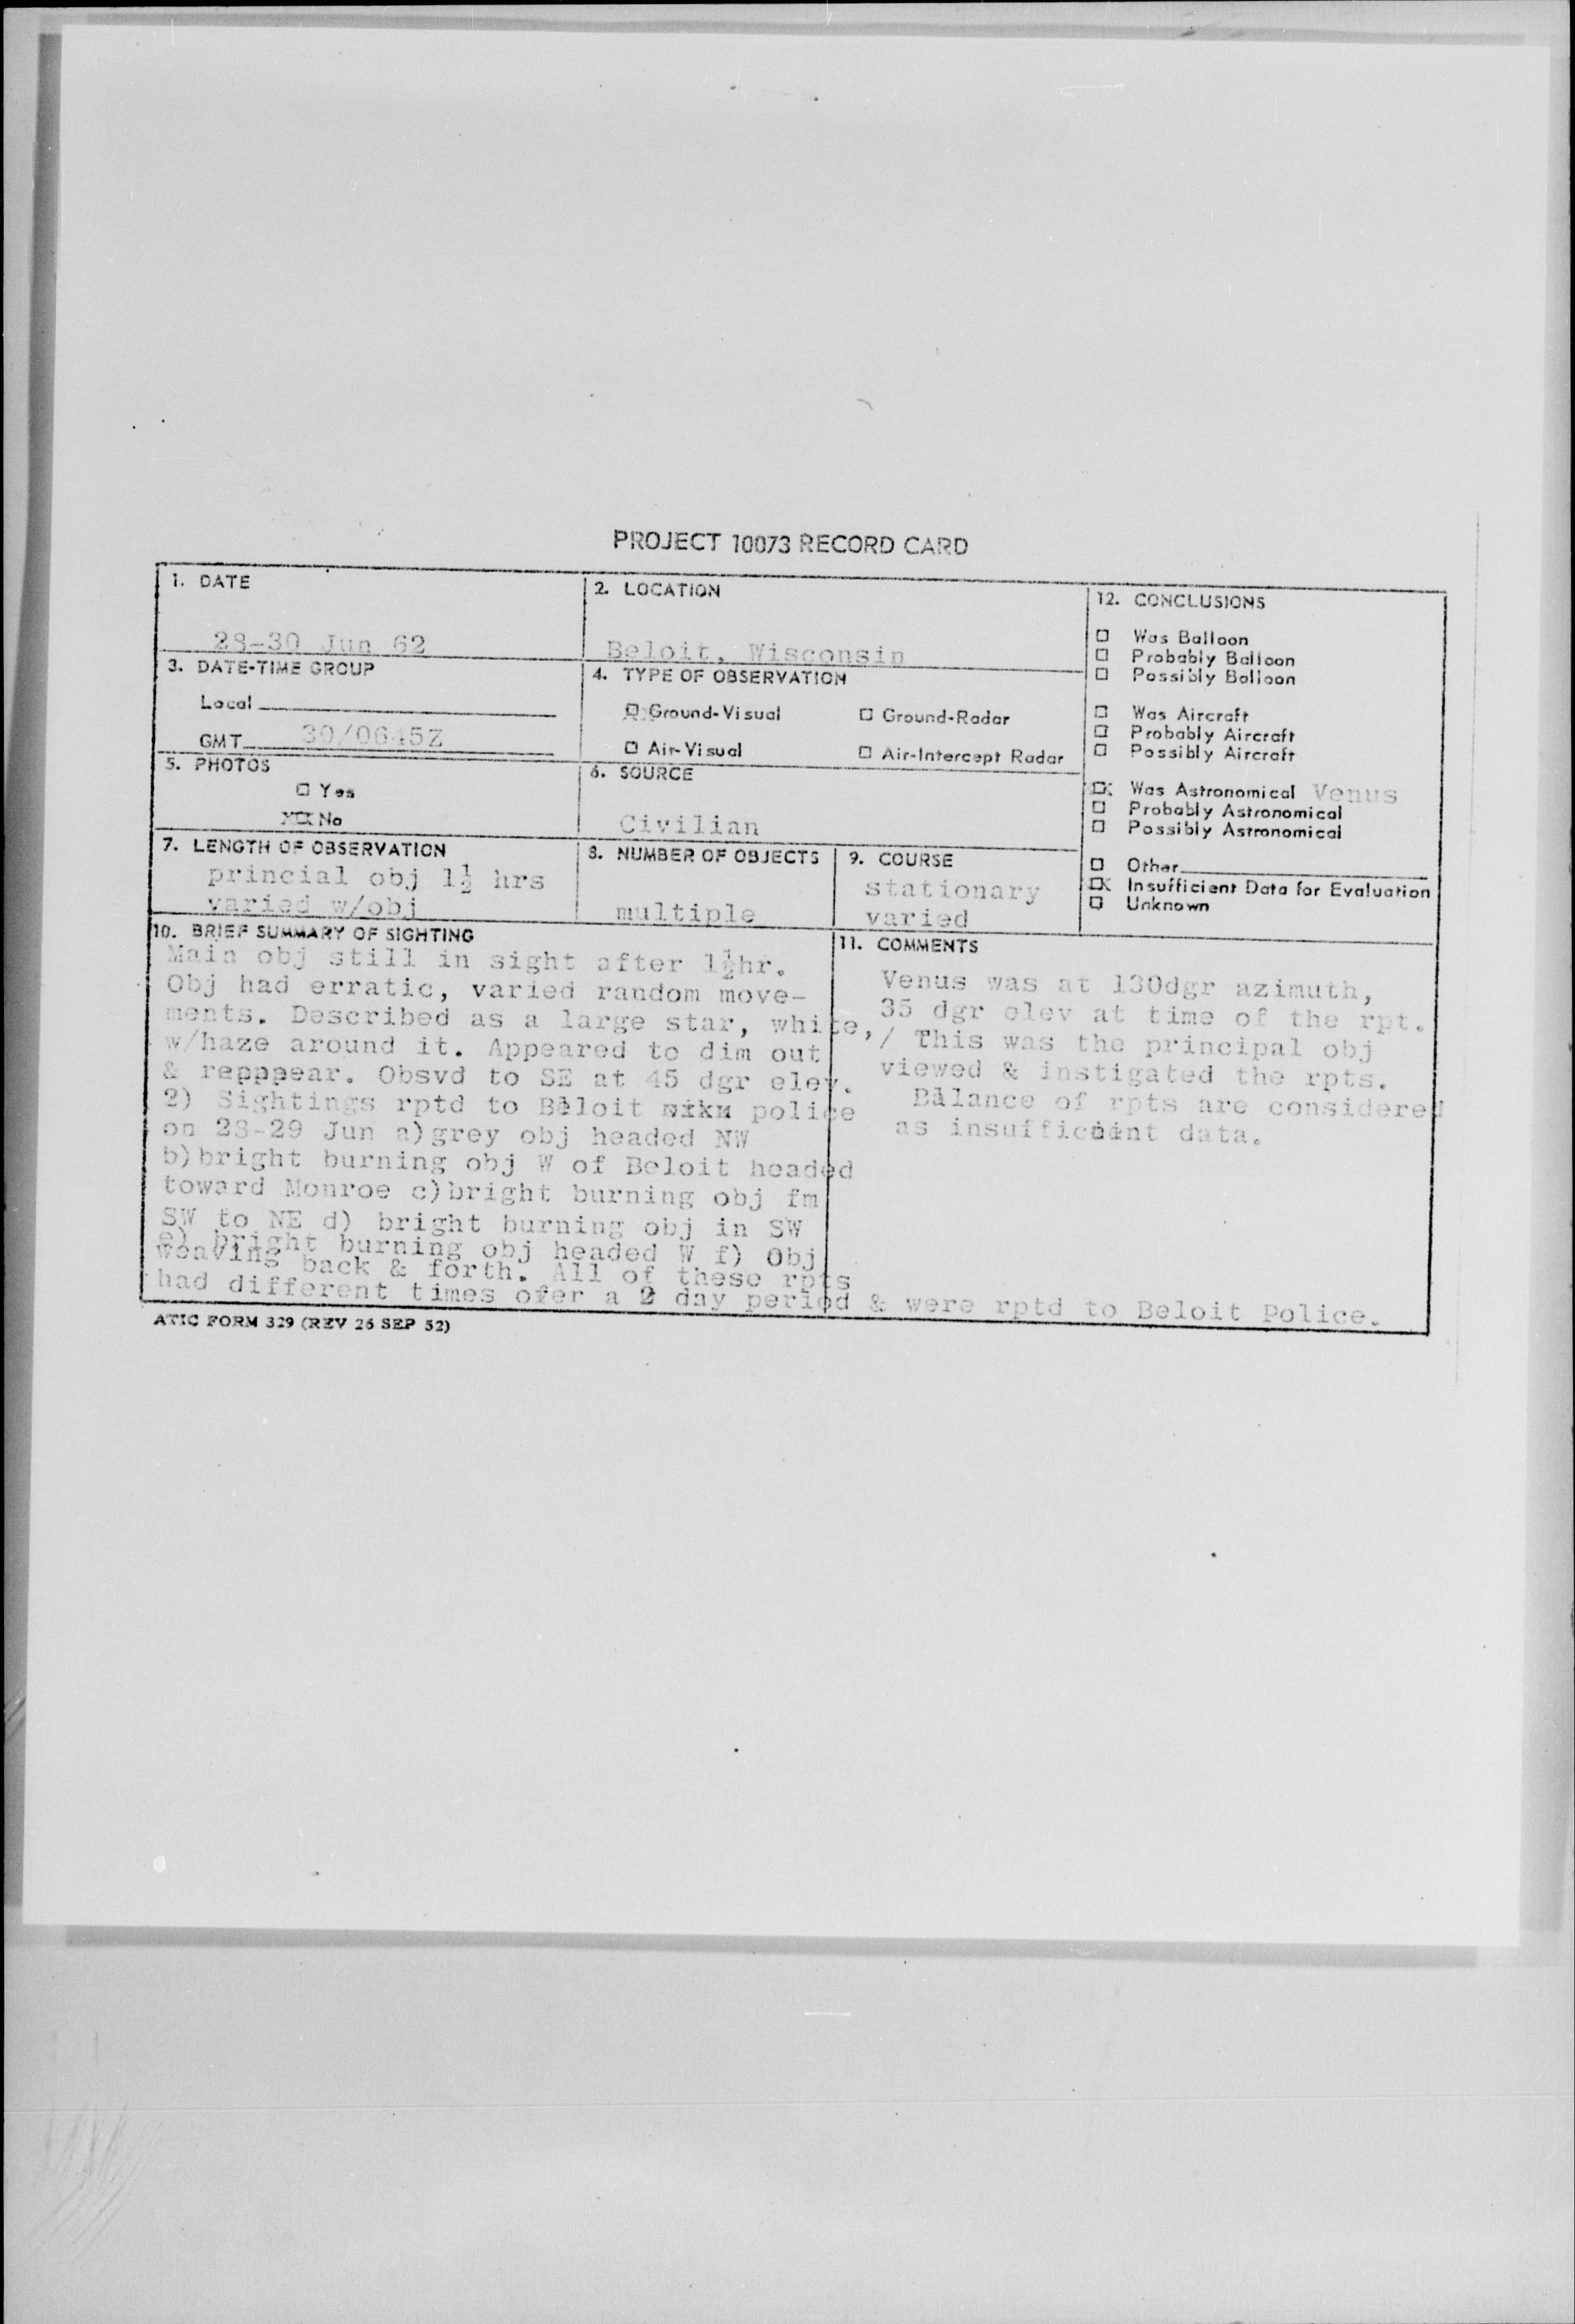 PROJECT 10073 RECORD CARD
1. DATE
28-30 Jun 62
2. LOCATION
Beloit, Wisconsin
3. DATE-TIME GROUP
Local
GMT 30/0645Z
4. TYPE OF OBSERVATION
Ground-Visual
Ground-Radar
Air-Visual
Air-Intercept Radar
5. PHOTOS
Yes
No
6. SOURCE
Civilian
7. LENGTH OF OBSERVATION
princial obj 1½ hrs
varied w/obj
8. NUMBER OF OBJECTS
multiple
9. COURSE
stationary
varied
12. CONCLUSIONS
Was Balloon
Probably Balloon
Possibly Balloon
Was Aircraft
Probably Aircraft
Possibly Aircraft
Was Astronomical Venus
Probably Astronomical
Possibly Astronomical
Other
Insufficient Data for Evaluation
Unknown
10. BRIEF SUMMARY OF SIGHTING
Main obj still in sight after 1½hr.
Obj had erratic, varied random move-
ments. Described as a large star, white,
w/haze around it. Appeared to dim out
& repppear. Obsvd to SE at 45 dgr elev.
2) Sightings rptd to Beloit police
on 28-29 Jun a)grey obj headed NW
b)bright burning obj W of Beloit headed
toward Monroe c)bright burning obj fm
SW to NE d) bright burning obj in SW
e) bright burning obj headed W f) Obj
weaving back & forth. All of these rpts
had different times ofer a 2 day period & were rptd to Beloit Police.
11. COMMENTS
Venus was at 130dgr azimuth,
35 dgr elev at time of the rpt.
/ This was the principal obj
viewed & instigated the rpts.
Balance of rpts are considered
as insufficient data.
ATIC FORM 329 (REV 26 SEP 52)